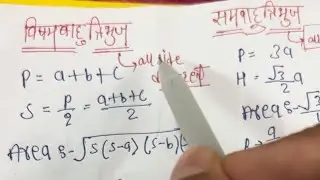 विषमबाहु त्रिभुज
all side
P = a+b+c
S = P/2 = (a+b+c)/2
Area = √s(s-a)(s-b)(
समबाहु त्रिभुज
P = 3a
H = √3/2 a
Area = √3